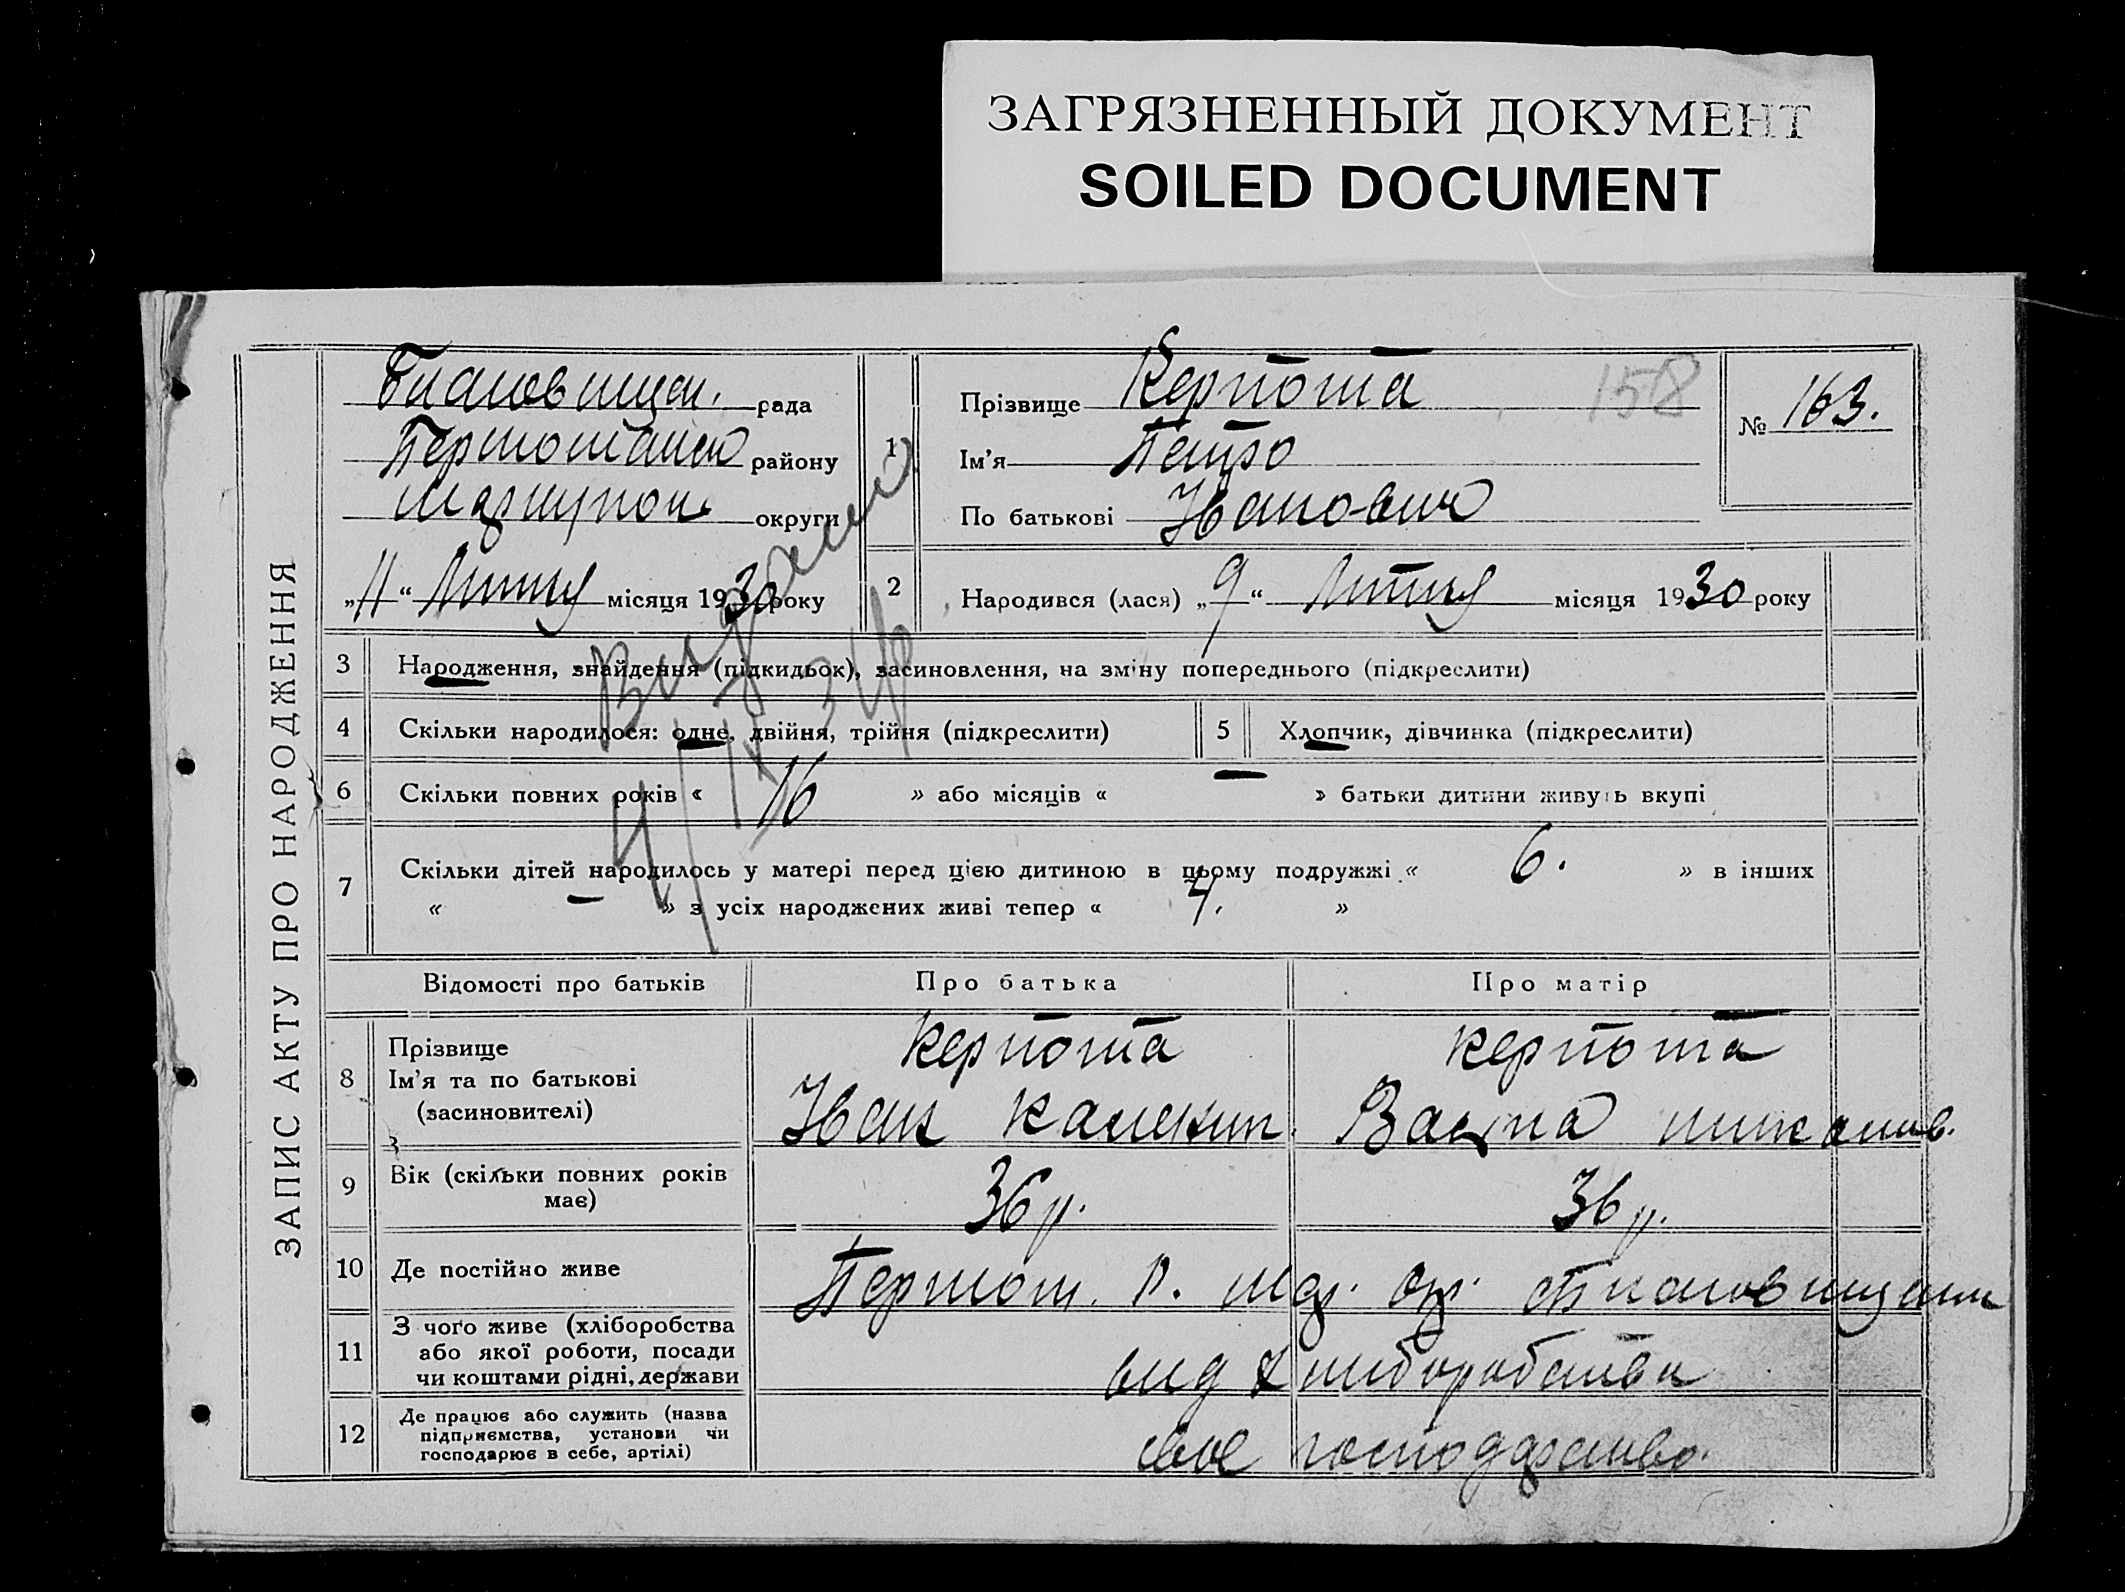 ЗАГРЯЗНЕННЫЙ ДОКУМЕНТ
SOILED DOCUMENT
ЗАПИС АКТУ ПРО НАРОДЖЕННЯ
рада
району
округи
„11“ Липня місяця 1930 року
1
Прізвище Керпота
158
Ім'я Петро
По батькові Иванович
№ 163.
2 Народився (лася) „9“ Липня місяця 1930 року
3 Народження, знайдення (підкидьок), засиновлення, на зміну попереднього (підкреслити)
4 Скільки народилося: одне, двійня, трійня (підкреслити)
5 Хлопчик, дівчинка (підкреслити)
6 Скільки повних років « 16 » або місяців « — » батьки дитини живуть вкупі
7 Скільки дітей народилось у матері перед цією дитиною в цьому подружжі « 6. » в інших
« — » з усіх народжених живі тепер « 4. »
Відомості про батьків
Про батька
Про матір
8 Прізвище
Ім'я та по батькові
(засиновителі)
Керпота
Иван
Керпота
9 Вік (скільки повних років
має)
36 р.
36 р.
10 Де постійно живе
11 З чого живе (хліборобства
або якої роботи, посади
чи коштами рідні, держави
від хліборобства
12 Де працює або служить (назва
підприємства, установи чи
господарює в себе, артілі)
своє господарство.